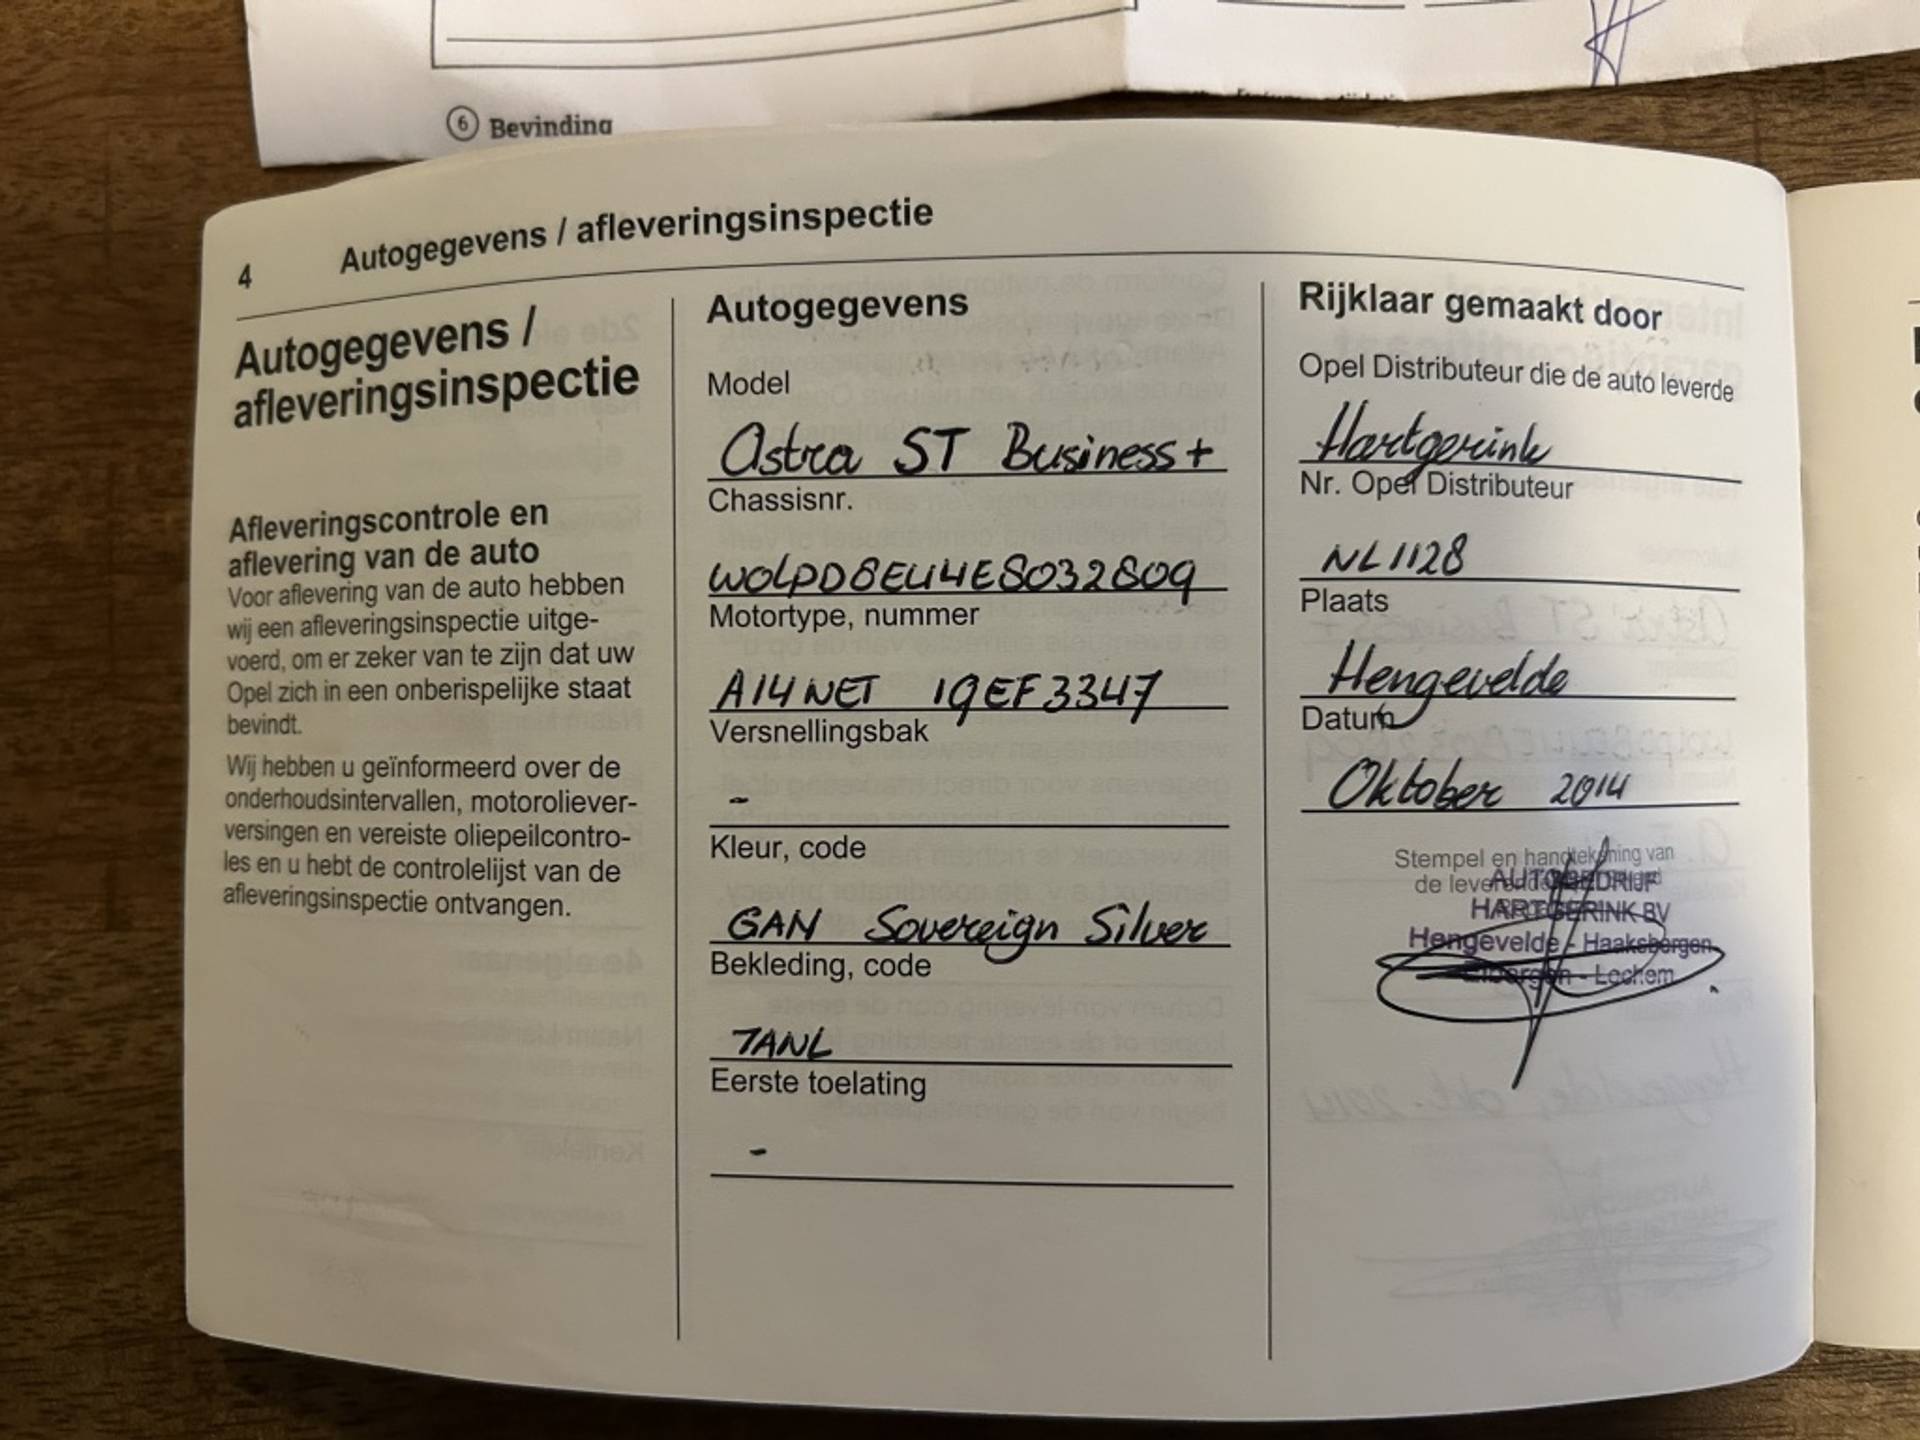 6 Bevinding
4 Autogegevens / afleveringsinspectie
Autogegevens /
afleveringsinspectie
Afleveringscontrole en
aflevering van de auto
Voor aflevering van de auto hebben
wij een afleveringsinspectie uitge-
voerd, om er zeker van te zijn dat uw
Opel zich in een onberispelijke staat
bevindt.
Wij hebben u geïnformeerd over de
onderhoudsintervallen, motoroliever-
versingen en vereiste oliepeilcontro-
les en u hebt de controlelijst van de
afleveringsinspectie ontvangen.
Autogegevens
Model
Astra ST Business+
Chassisnr.
WOLPD8EU4E8032809
Motortype, nummer
A14NET 19EF3347
Versnellingsbak
-
Kleur, code
GAN Sovereign Silver
Bekleding, code
TANL
Eerste toelating
-
Rijklaar gemaakt door
Opel Distributeur die de auto leverde
Hartgerink
Nr. Opel Distributeur
NL1128
Plaats
Hengevelde
Datum
Oktober 2014
Stempel en handtekening van
de
AUTOBEDRIJF
HARTGERINK BV
Hengevelde - Haaksbergen
- Lochem